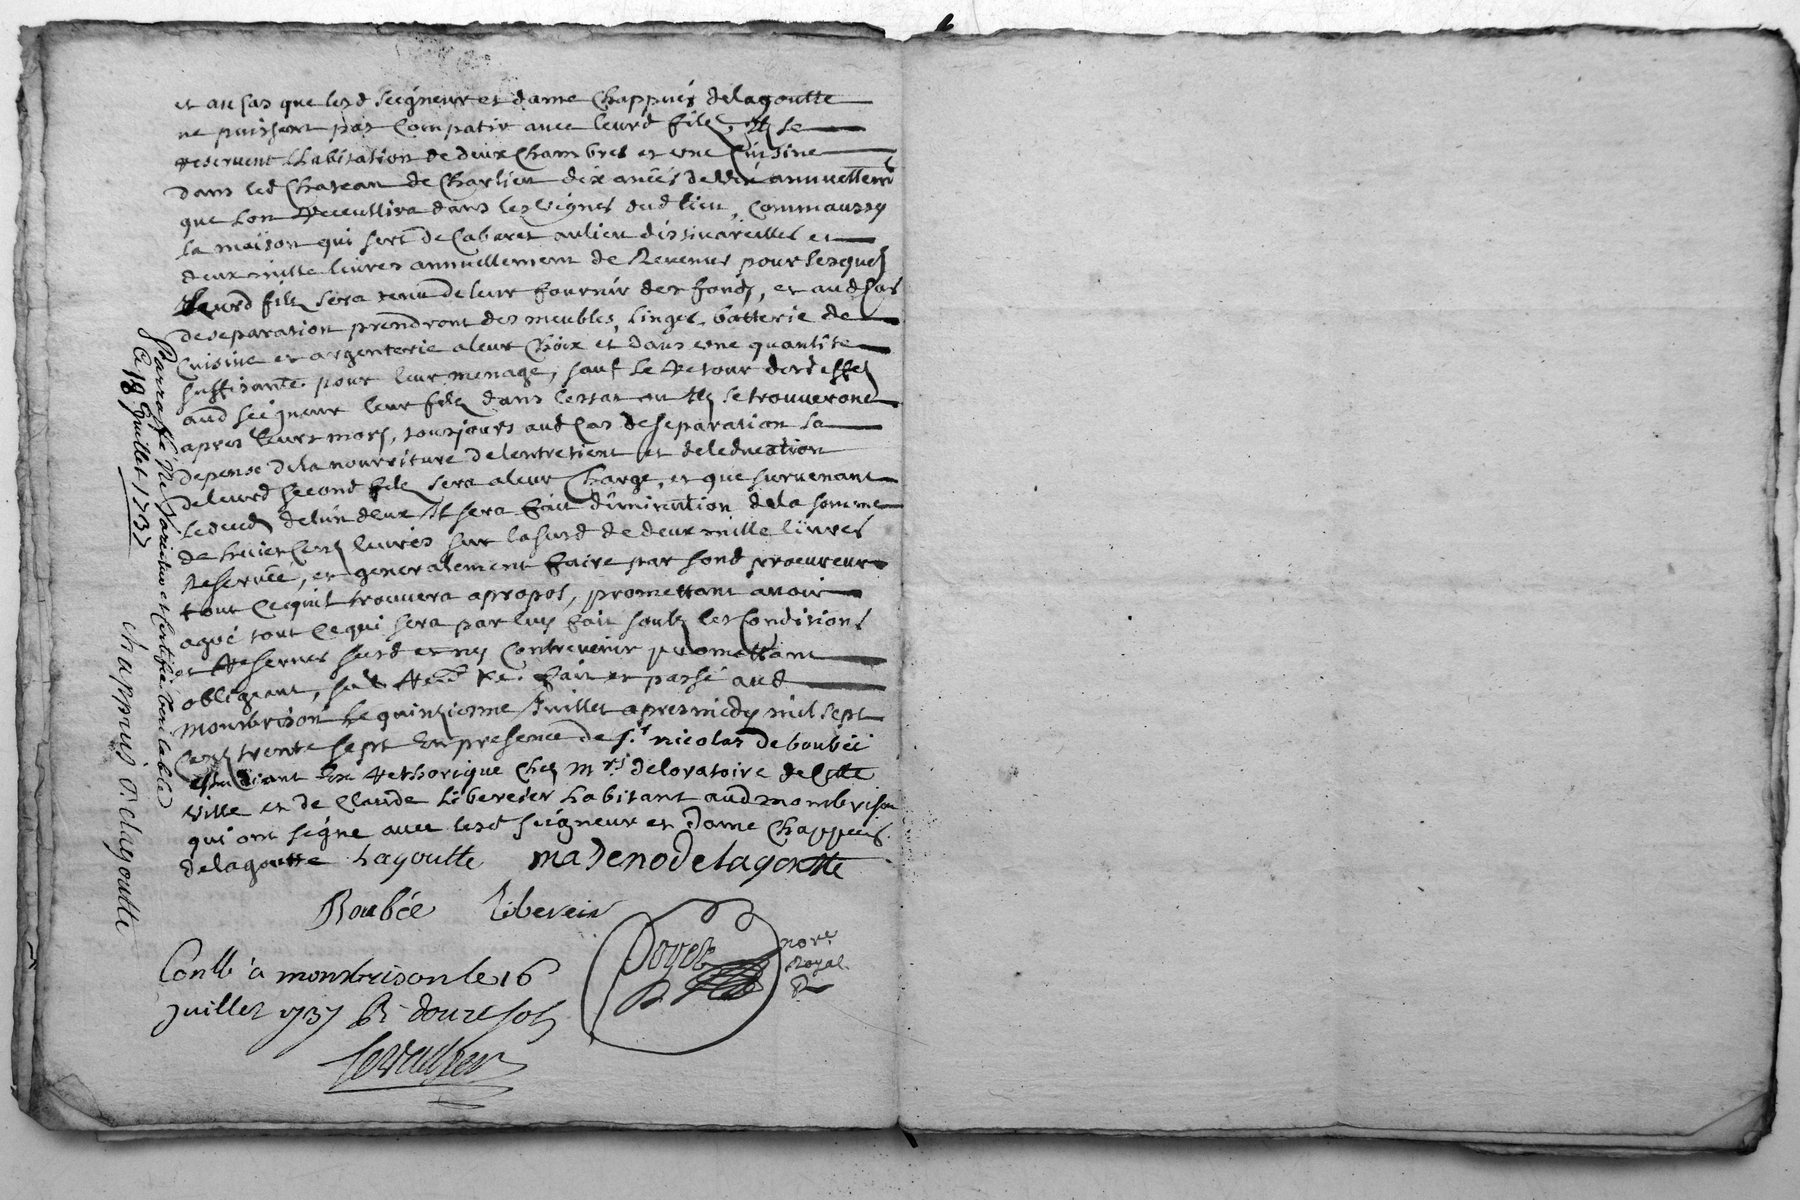 et au cas que lesd seigneur et dame Chappuis delagoutte
ne puissent pas Compatir avec leurd filz, Ilz se
reservent Lhabitation de deux Chambres et une Cuisine
dans led Chateau de Charlieu dix anées de vin annuellemt
que lon recueillira dans les vignes dud lieu, Comm aussy
la maison qui sert de Cabaret au lieu et
deux mille livres annuellement de Revenus pour lesquelz
leurd filz sera tenu de leur fournir des fondz, et aud Cas
de separation prendront des meubles, linges, batterie de
Cuisine et argenterie a leur Choix et dans une quantité
suffisante pour leur menage, sauf le retour desd effetz
aud seigneur leur filz dans lestat ou Ilz se trouveront
apres leurs mors, tousjours aud Cas de separation la
depense de la nourriture de lentretient et de leducation
de leurd second filz sera a leur Charge, et que survenant
le deceds de lun deux Il sera fait diminution de la somme
de huict Centz livres sur la susd de deux mille livres
Reservée, et generalement faire par sond procureur
tout Cequil trouvera apropos, promettant avoir
agreé tout Cequi sera par luy fait soubz les Conditions
et Reserves susd et ny Contrevenir promettant
obligeant, fait et passé aud
montbrison le quinzieme Juillet apres midy mil sept
Centz trente sept En presence de sr nicolas de boubée
estudiant En Rethorique Chez mrs de loratoire de Cette
ville et de Claude Libercier habitant aud montbrison
qui ont signé avec lesd seigneur et dame Chappuis
delagoutte Lagoutte ma Deno De lagoutte
Boubée
Poyet
nore
Royal
Conllé a montbrison le 16
juillet 1737 Rt douze solz
Levasseur
Parraffé Ne Varietur et Certifié veritable
Ce 18 Juillet 1737
Chappuis Delagoutte